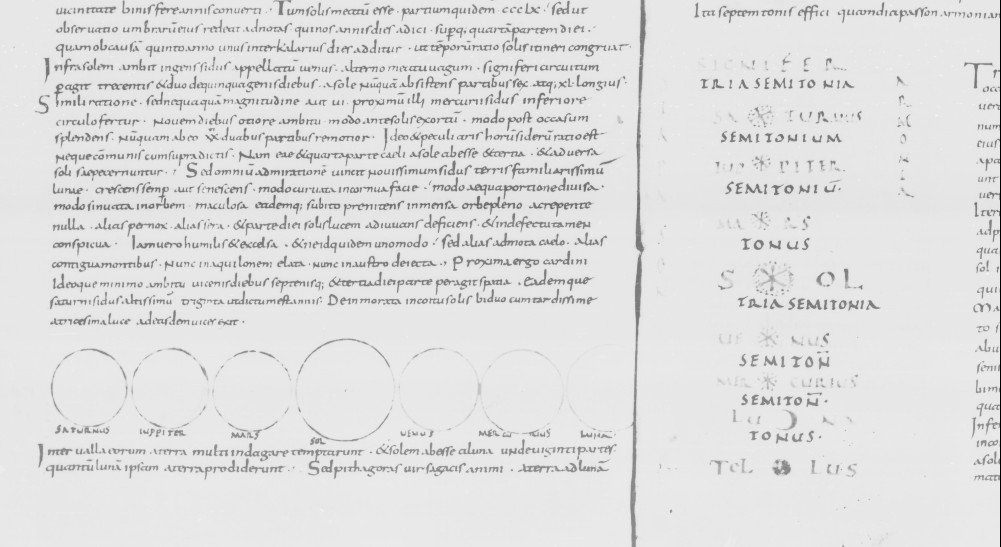 uicinitate binis fere annis conuerti · Tum solis meatū esse · partium quidem · ccclx · sed ut
obseruatio umbrarū eius redeat ad notas · quinos annis dies adici · supq; quartā partem diei ·
quam ob causā quinto anno unus interkalarius dies additur · ut temporū ratio solis itineri congruat ·
Infra solem ambit ingens sidus appellatū uenus · alterno meatu uagum · signiferi circuitum
pagit trecentis & duo de quinquagenis diebus · a sole nūquā absistens partibus sex · atq; xl · longius ·
Simili ratione · sed nequaquā magnitudine aut ui · proximū illi mercurii sidus inferiore
circulo fertur · nouem diebus otiore ambitu modo ante solis exortū · modo post occasum
splendens · nūquam ab eo xx duabus partibus remotior · Ideo & peculiaris horū siderū ratio est
neque cōmunis cum supradictis · Nam eae & quarta parte caeli a sole abesse & tertia · & aduersa
soli saepe cernuntur · Sed omniū admiratione uincit nouissimum sidus terris familiarissimū
lunae · crescens semp aut senescens · modo curuata in cornua facie · modo aequa portione diuisa ·
modo sinuata in orbem · maculosa eademq; subito prenitens inmensa orbe pleno ac repente
nulla · alias pernox · alias sera · & parte diei solis lucem adiuuans deficiens · & in defectu tamen
conspicua · Iam uero humilis & excelsa · & ne id quidem uno modo · sed alias admota caelo · alias
contigua montibus · Nunc in aquilonem elata · nunc in austro deiecta · Proxima ergo cardini
Ideoque minimo ambitu uicenis diebus septenisq; & tertia diei parte peragit spatia · Eadem que
saturni sidus altissimū triginta ut dictum est annis · Dein morata in coitu solis biduo cum tardissime
a tricesima luce ad easdem uices exit ·
SATURNUS IUPPITER MARS SOL UENUS MERCURIUS LUNA
Interualla uorum a terra multi indagare temptarunt · & solem abesse a luna undeuiginti partes
quantū lunā ipsam a terra prodiderunt · Sed pithagoras uir sagacis animi · a terra ad lunā
Ita septem tonis effici quam diapason armonian
SIGNIFER
TRIA SEMITONIA
SATURNUS
SEMITONIUM
IUPPITER
SEMITONIŪ
MARS
TONUS
SOL
TRIA SEMITONIA
UENUS
SEMITOÑ
MERCURIUS
SEMITOÑ
LUNA
TONUS ·
TELLUS